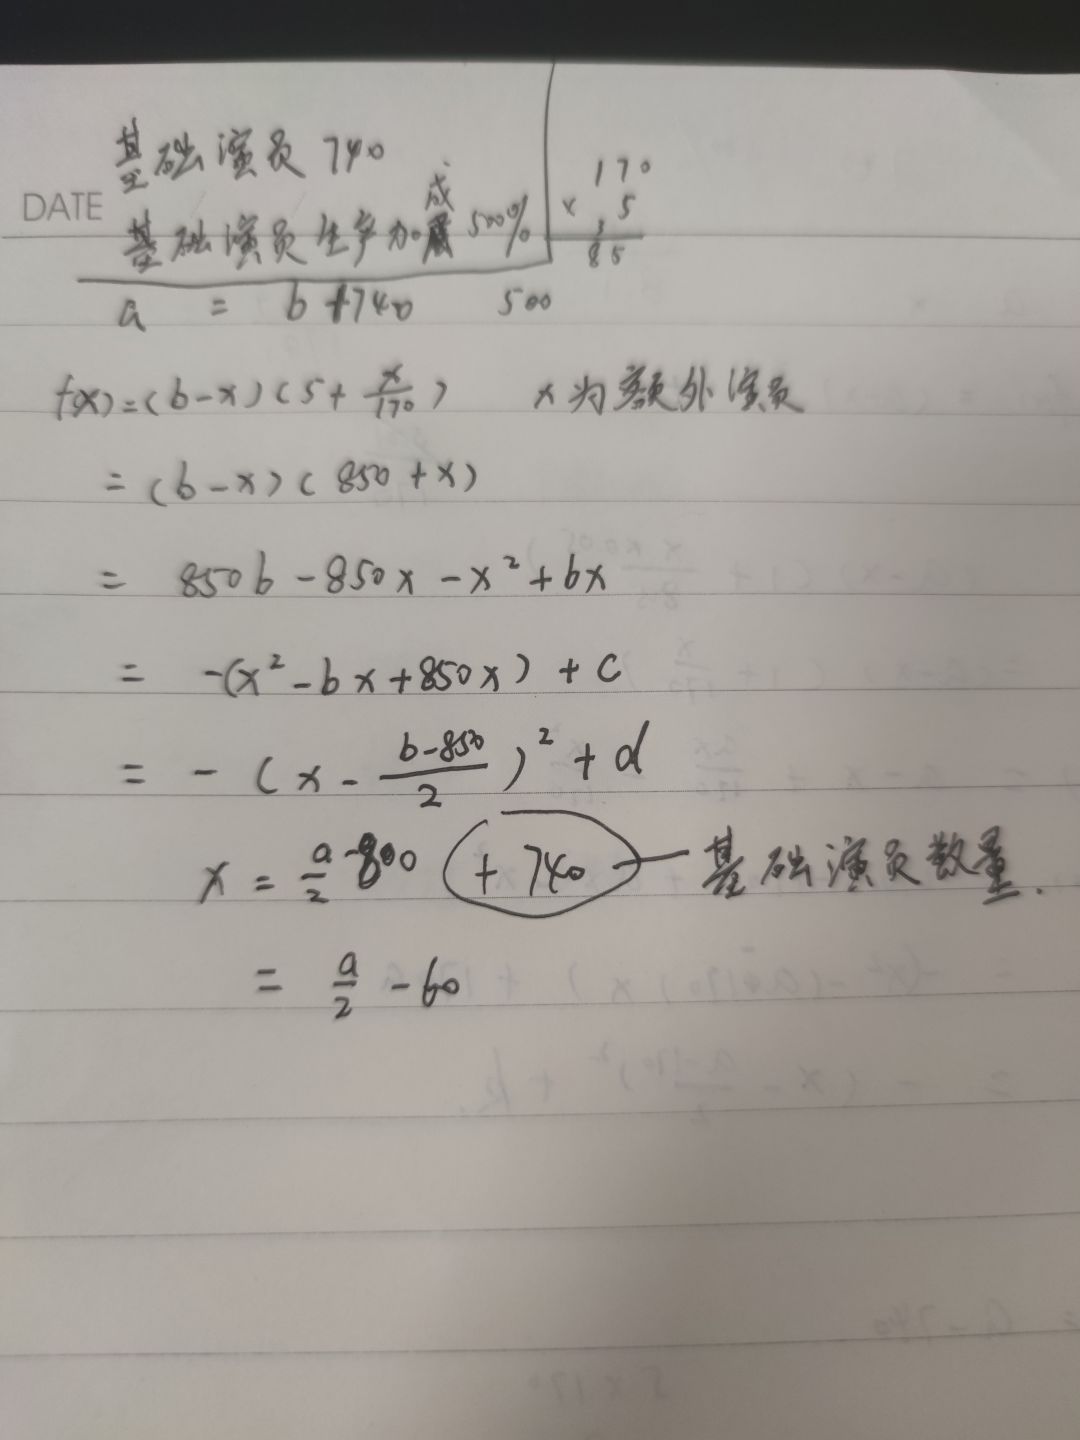 基础演员 740
DATE
基础演员生产加成 500%
170
× 5
3
85
a = b+740 500
f(x)=(b-x)(5+x/170) x为额外演员
=(b-x)(850+x)
= 850b-850x-x²+bx
= -(x²-bx+850x)+c
= -(x-(b-850)/2)²+d
x = a/2-800 (+740)—基础演员数量.
= a/2-60